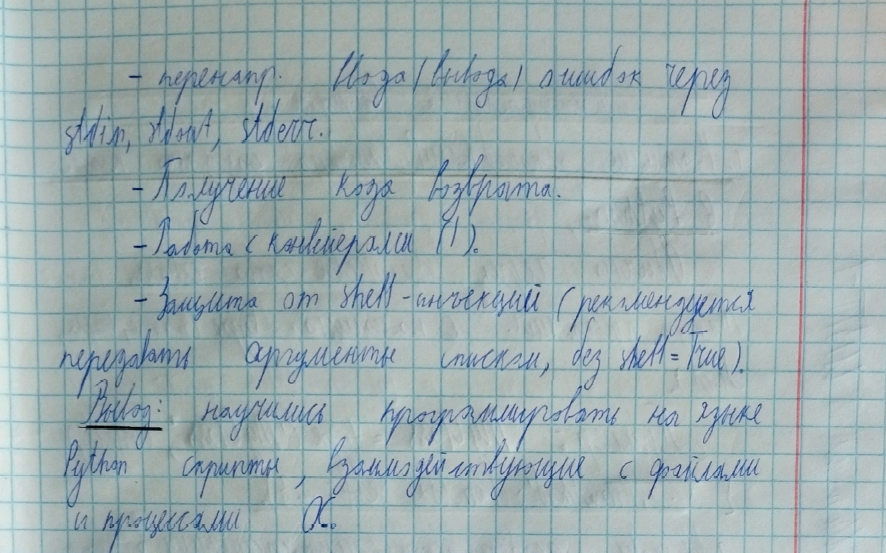 - перенапр. ввода/вывода/ошибок через
stdin, stdout, stderr.
- Получение кода возврата.
- Работа с конвейерами (|).
- Защита от shell-инъекций (рекомендуется
передавать аргументы списком, без shell=True).
Вывод: научились программировать на языке
Python скрипты, взаимодействующие с файлами
и процессами ОС.